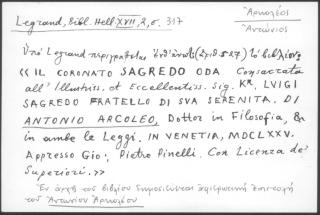 Legrand, Bibl. Hell. XVII, 2, σ. 317
Ἀρκολέος
Ἀντώνιος
Ὑπὸ Legrand περιγράφεται ἐνθ' ἀνωτ. (ἀριθ. 527) τὸ βιβλίον:
« IL CORONATO SAGREDO ODA Consacrata
all' Illustriss. et Eccellentiss. Sig. Kr. LVIGI
SAGREDO FRATELLO DI SVA SERENITA. DI
ANTONIO ARCOLEO, Dottor in Filosofia, &
in ambe le Leggi. IN VENETIA, MDCLXXV.
Appresso Gio: Pietro Pinelli. Con Licenza de'
Superiori. »
Ἐν ἀρχῇ τοῦ βιβλίου δημοσιεύεται ἀφιερωτικὴ ἐπιστολὴ
τοῦ Ἀντωνίου Ἀρκολέου